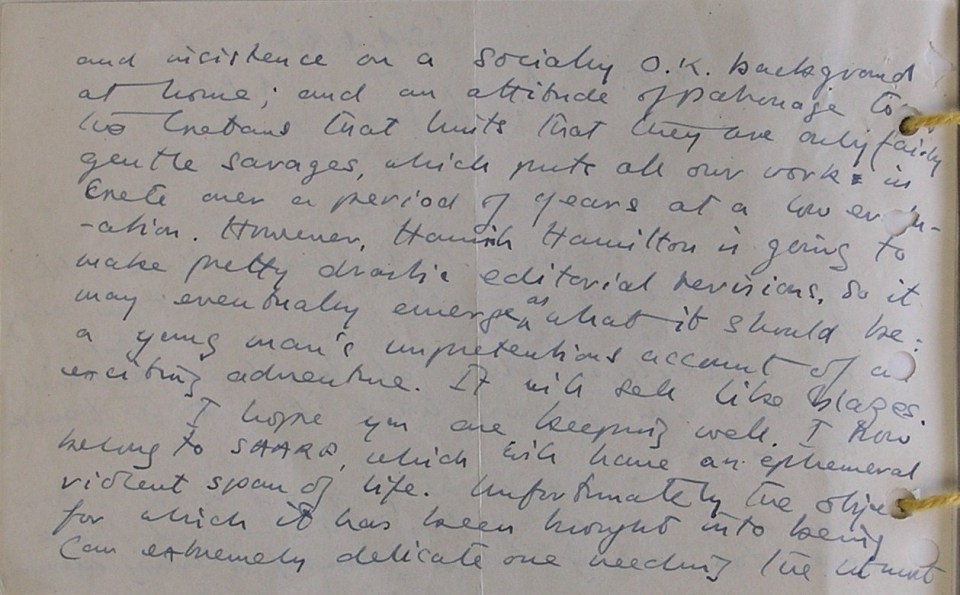 and insistence on a socially O.K. background
at home; and an attitude of patronage to
the Cretans that hints that they are only fairly
gentle savages, which puts all our work in
Crete over a period of years at a lower
-ation. However, Hamish Hamilton is going to
make pretty drastic editorial revisions, so it
may eventually emerge as what it should be:
a young man's unpretentious account of an
exciting adventure. It will sell like blazes.
I hope you are keeping well. I now
belong to SAARF, which will have an ephemeral
violent span of life. Unfortunately the obje
for which it has been brought into being
(an extremely delicate one needing the utmost